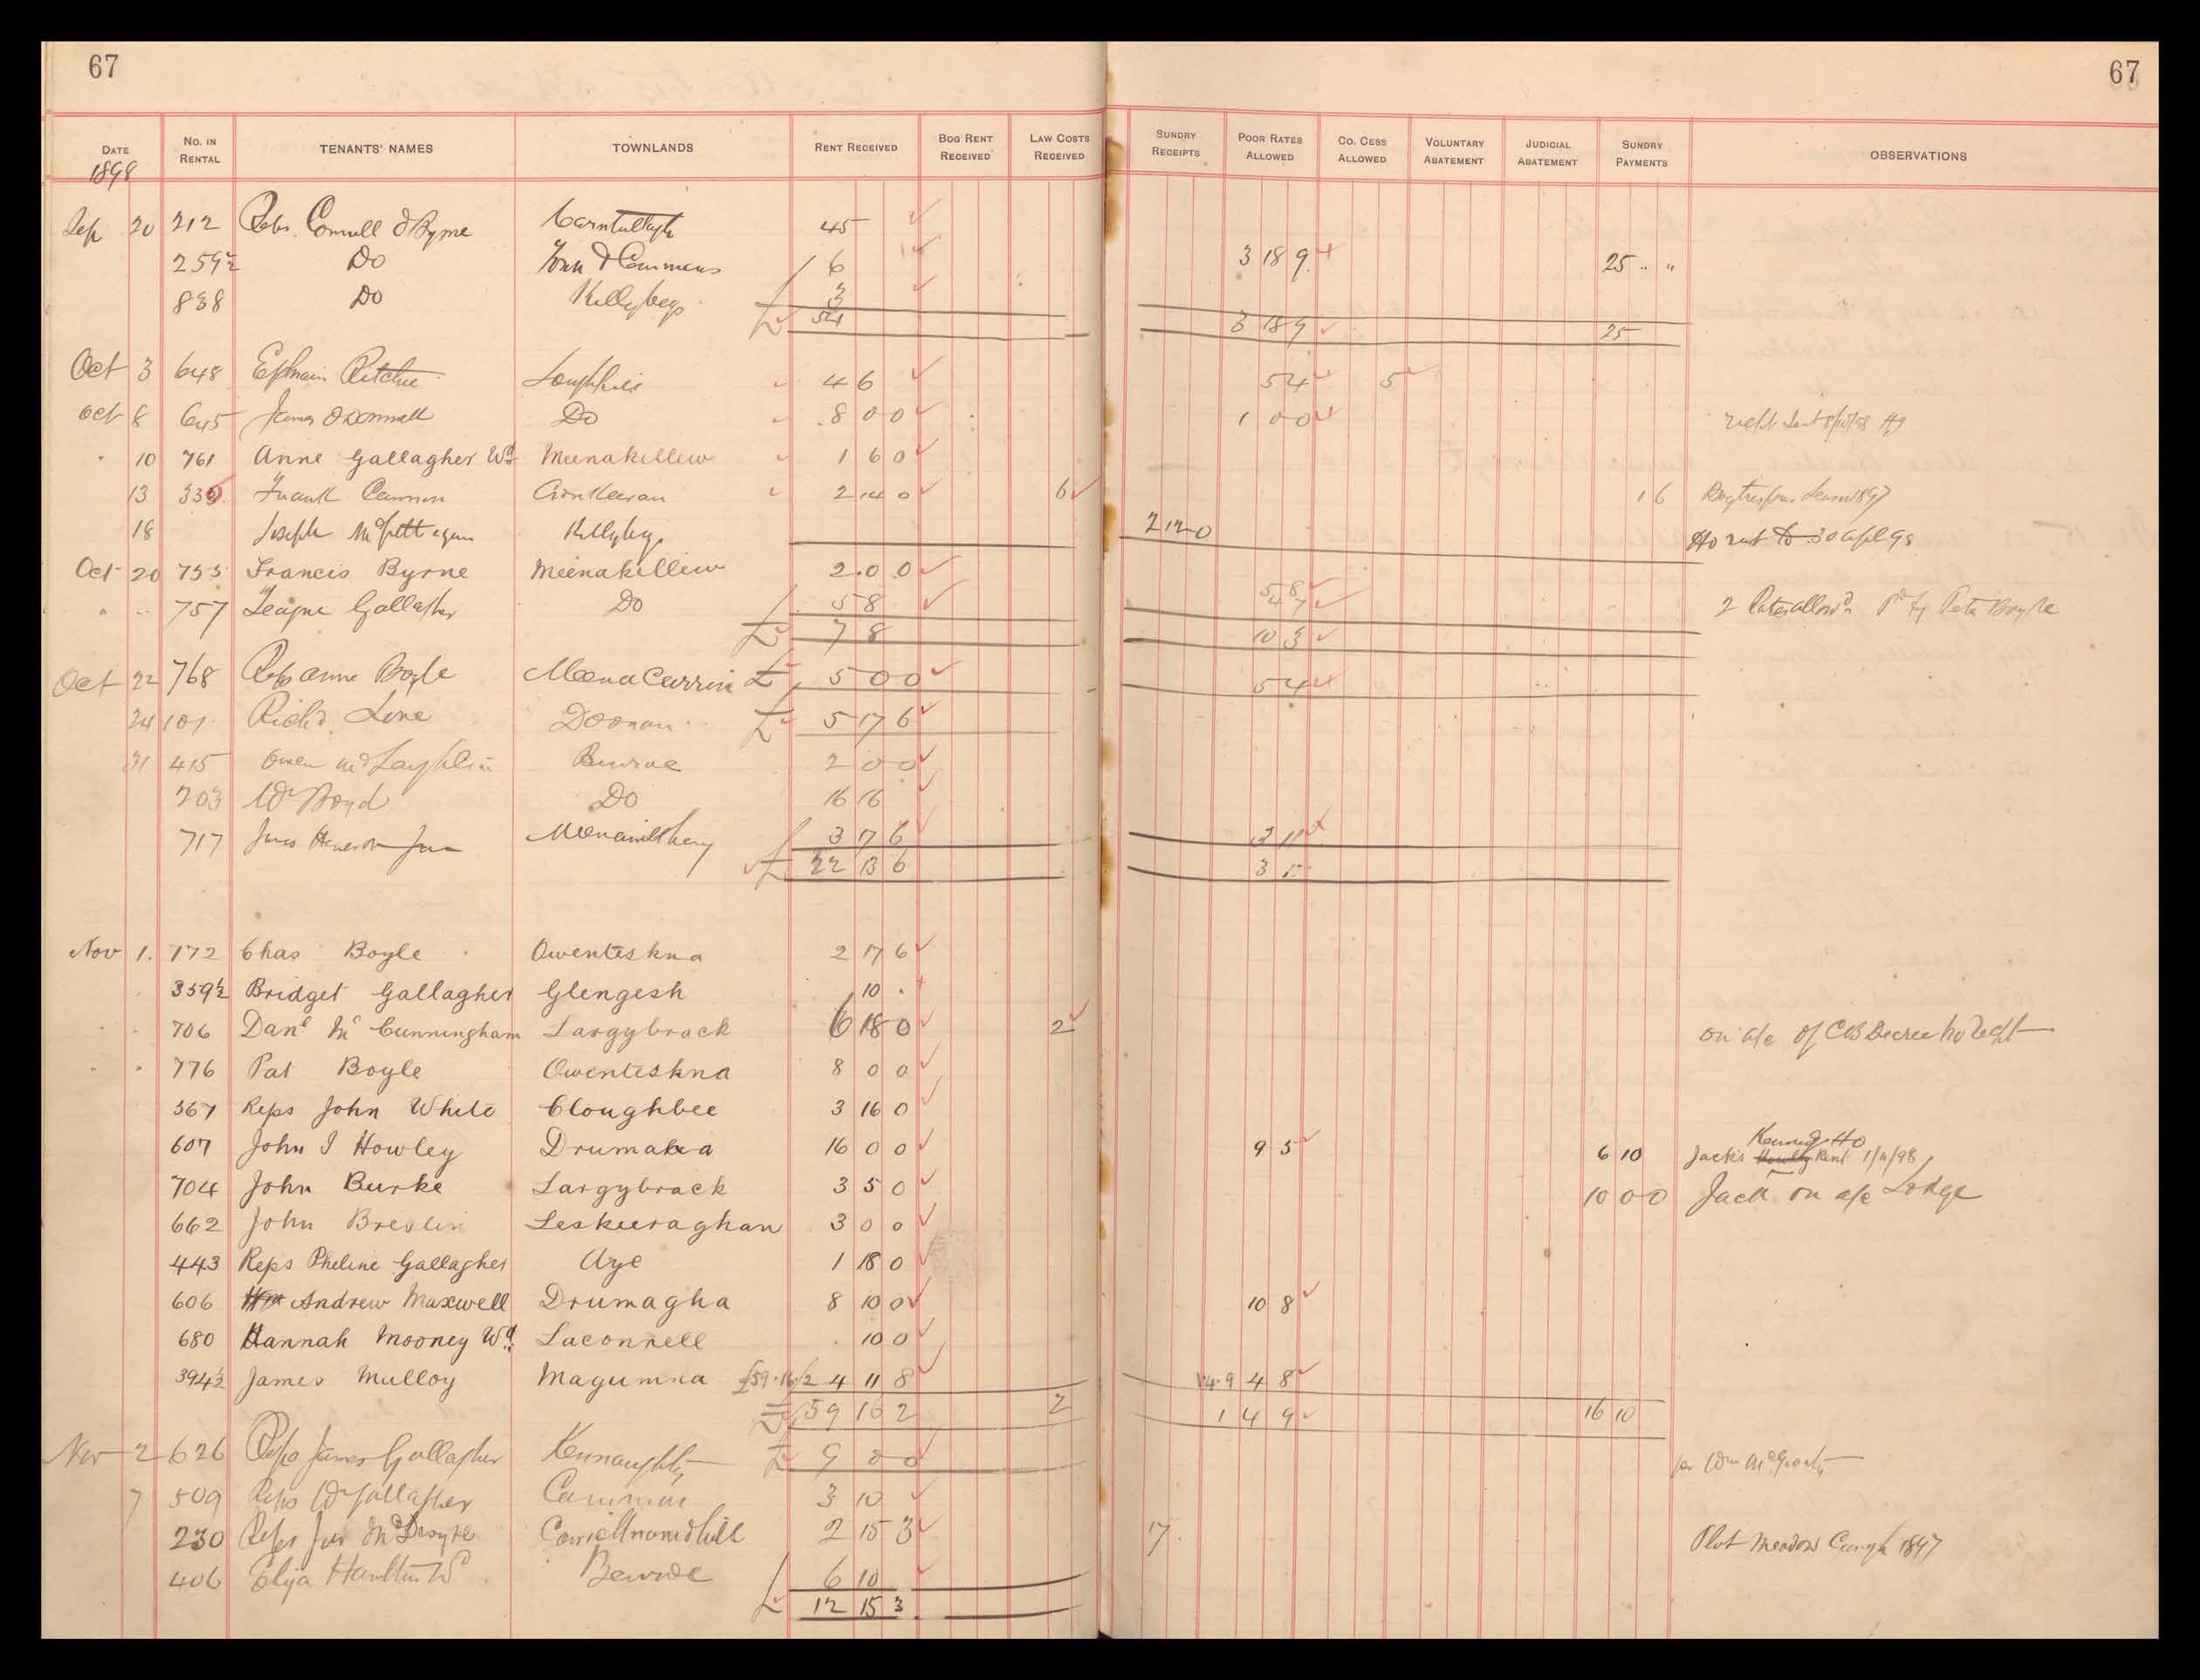 67 67
DATE No. IN RENTAL TENANTS' NAMES TOWNLANDS RENT RECEIVED BOG RENT RECEIVED LAW COSTS RECEIVED SUNDRY RECEIPTS POOR RATES ALLOWED CO. CESS ALLOWED VOLUNTARY ABATEMENT JUDICIAL ABATEMENT SUNDRY PAYMENTS OBSERVATIONS
1898
Sep 20 212 Reps. Connell O'Byrne 45
259½ Do 6 3 18 9 25 " "
838 Do Killybegs 3
£ 54 3 18 9 25
Oct 3 648 Ephraim Ritchie 4 6 5 4 5
Oct 8 645 James O'Donnell Do 8 0 0 1 0 0
" 10 761 Anne Gallagher Wd Meenakillew 1 6 0
13 Frank Cannon 2 14 0 6 1 6
18 Joseph Killybegs 2 12 0 Ho rent to 30 Apl 98
Oct 20 755 Francis Byrne Meenakillew 2 0 0
" " 757 Teague Gallagher Do 5 8 2 Rates allowd Pd by Pete Boyle
£ 7 8 10 3
Oct 22 768 Reps Anne Boyle Meenacurrin £ 5 0 0 5 4
24 101 Richd Love Doonan £ 5 17 6
31 415 Owen McLaughlin Benroe 2 0 0
203 Wm Boyd Do 16 16
717 3 17 6 3 11
£ 22 13 6 3 11
Nov 1. 772 Chas Boyle Owenteskna 2 17 6
359½ Bridget Gallagher Glengesh 10 .
706 Danl Mc Cunningham Largybrack 6 18 0 2 on a/c of CB Decree no recpt
776 Pat Boyle Owenteskna 8 0 0
367 Reps John White Cloughbee 3 16 0
607 John I Howley Drumaha 16 0 0 9 5 6 10 Jack's Rent 1/11/98
704 John Burke Largybrack 3 5 0 10 0 0 Jack on a/c Lodge
662 John Breslin Leskeeraghan 3 0 0
443 Reps Pheline Gallagher Aye 1 18 0
606 Andrew Maxwell Drumagha 8 10 0 10 8
680 Hannah Mooney Wd. Laconnell 10 0
394½ James Mulloy Magumna £59.16/2 4 11 8 4 8
£ 59 16 2 2 1 4 9 16 10
Nov 2 626 Reps James Gallagher Kennaughty £ 9 0 0
7 509 Reps W Gallagher 3 10
230 Reps 2 15 3 17 Plot Meadow 1897
406 Eliza Hamilton Wd Benroe 6 10
£ 12 15 3